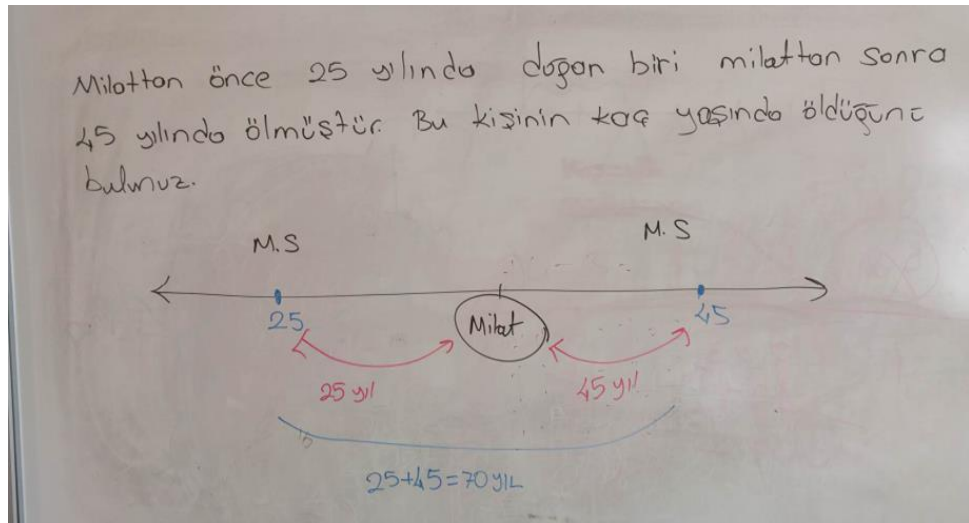 Milattan önce 25 yılında doğan biri milattan sonra
45 yılında ölmüştür. Bu kişinin kaç yaşında öldüğünü
bulunuz.
M.S
M.S
25
Milat
45
25 yıl
45 yıl
25+45=70 YIL